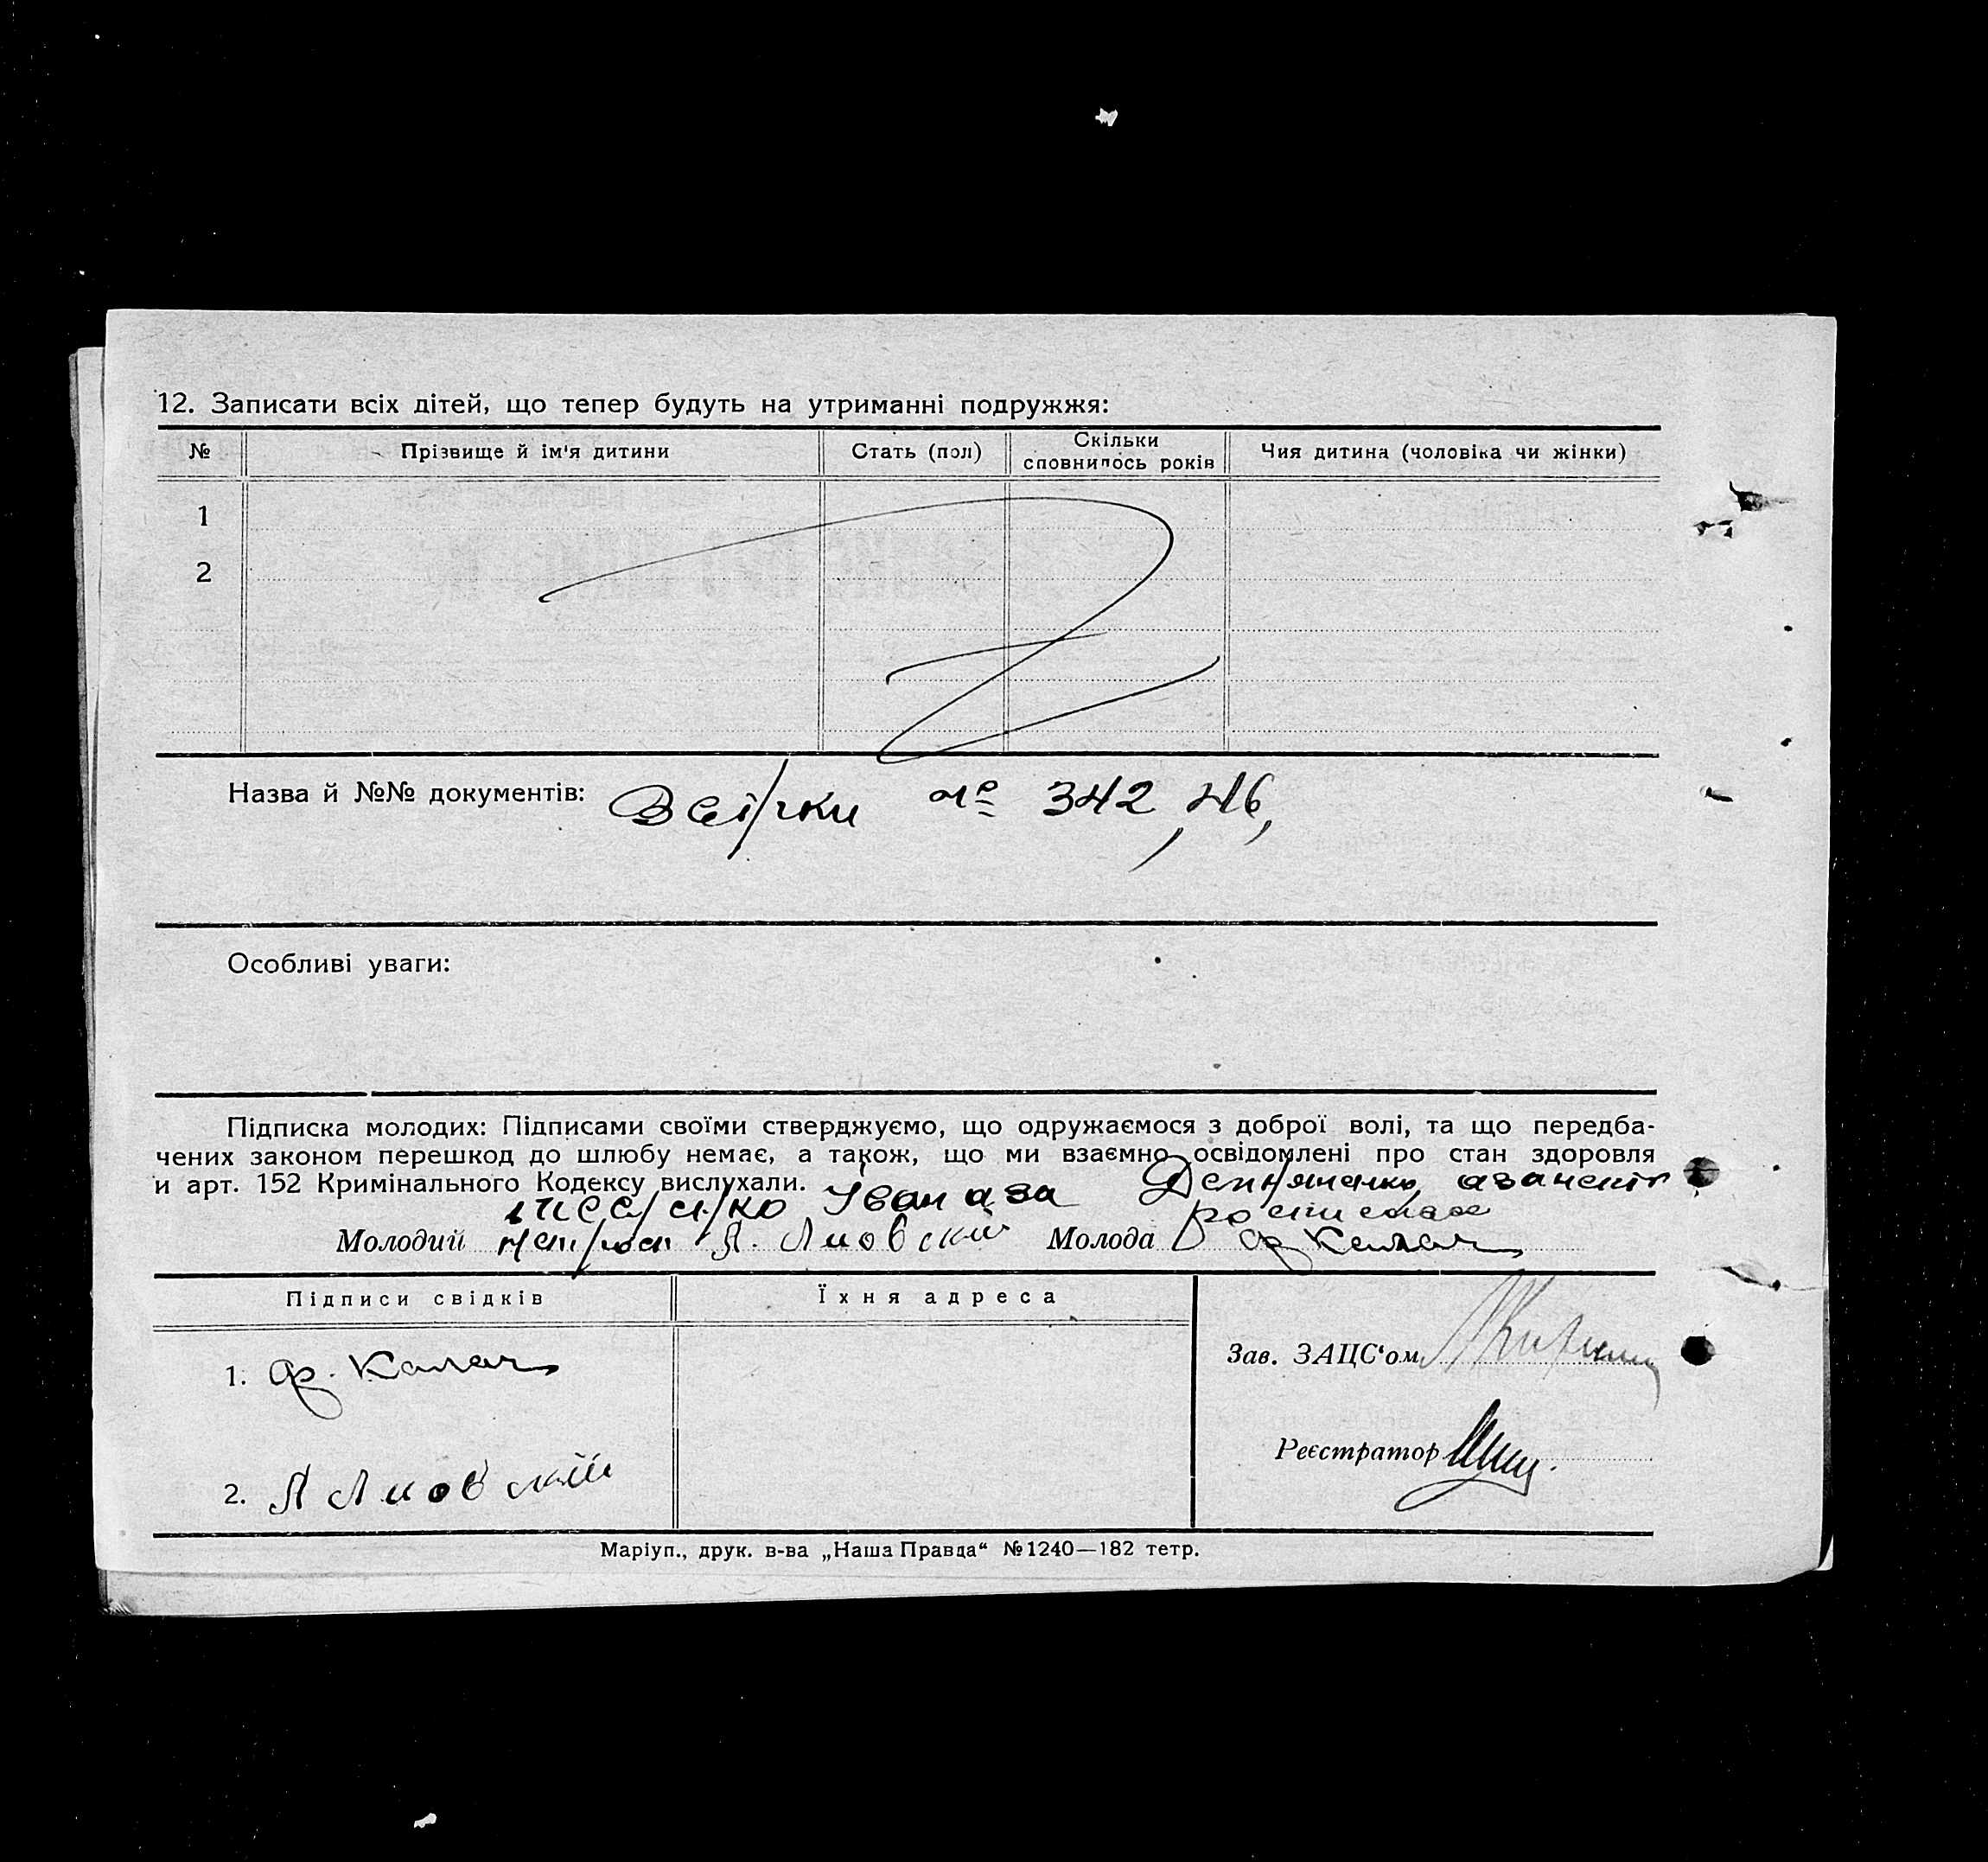 12. Записати всіх дітей, що тепер будуть на утриманні подружжя:
№ Прізвище й ім'я дитини Стать (пол) Скільки сповнилось років Чия дитина (чоловіка чи жінки)
1
2
Назва й №№ документів: № 342, 46,
Особливі уваги:
Підписка молодих: Підписами своїми стверджуємо, що одружаємося з доброї волі, та що передба-
чених законом перешкод до шлюбу немає, а також, що ми взаємно освідомлені про стан здоровля
и арт. 152 Кримінального Кодексу вислухали.
Івана за
Молодий Молода
Підписи свідків Їхня адреса
Зав. ЗАЦС'ом
1.
Реєстратор
2.
Маріуп., друк. в-ва „Наша Правда“ № 1240—182 тетр.